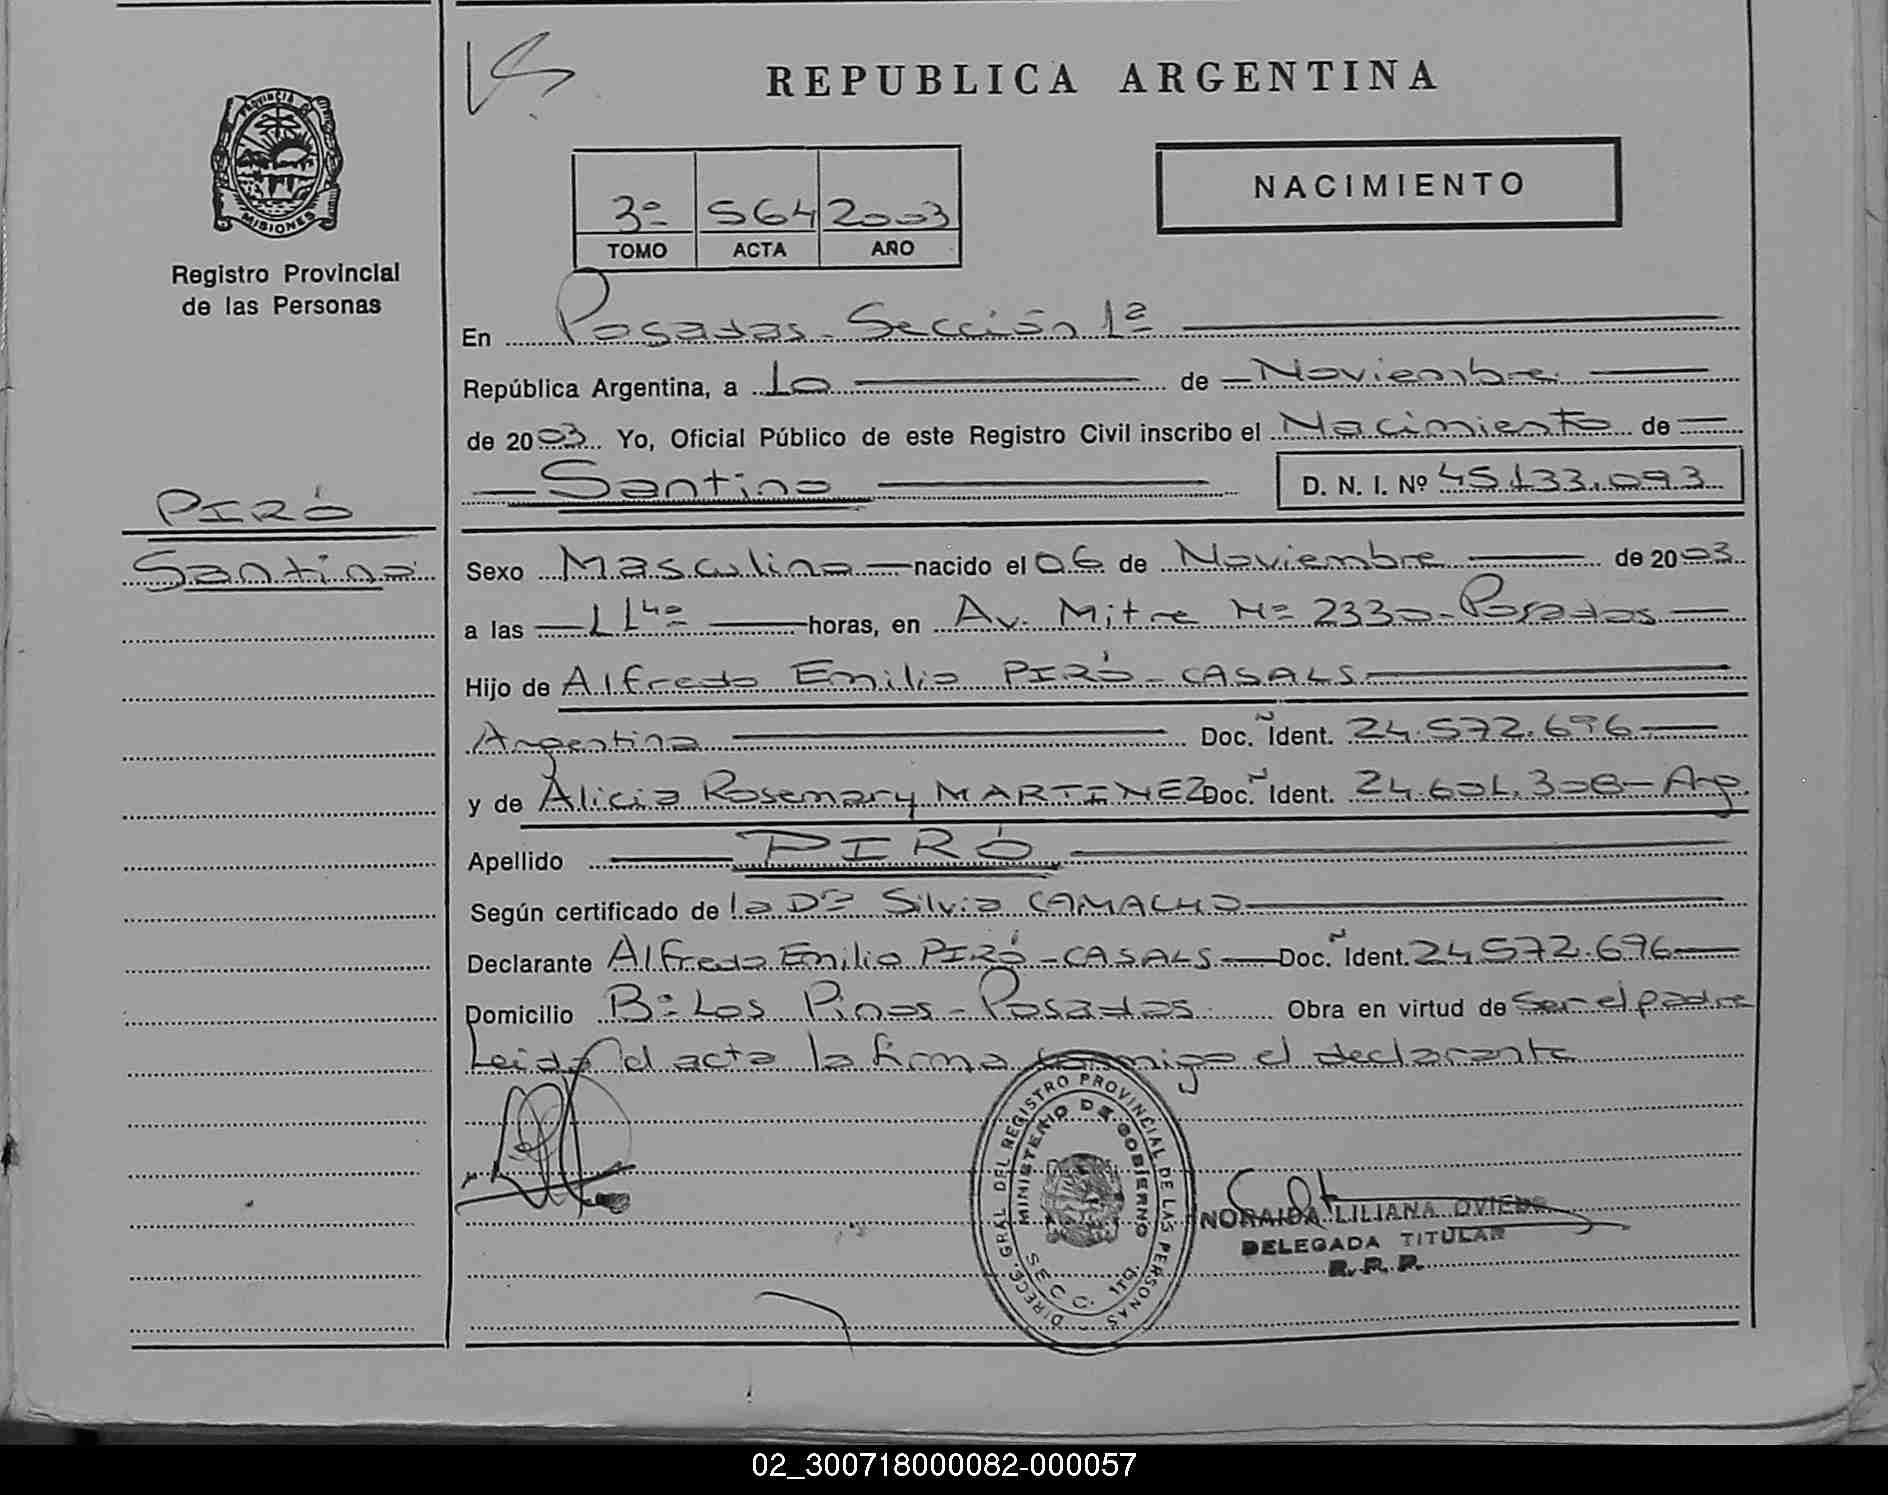 REPUBLICA ARGENTINA
PROVINCIA DE MISIONES
Registro Provincial
de las Personas
NACIMIENTO
3º 564 2003
TOMO ACTA AÑO
En Posadas - Sección 1ª
República Argentina, a 10 de Noviembre
de 2003 Yo, Oficial Público de este Registro Civil inscribo el Nacimiento de
Santino D. N. I. Nº 45.133.093
PIRÓ
Santino
Sexo Masculino nacido el 06 de Noviembre de 2003
a las 11⁴⁰ horas, en Av. Mitre Nº 2330 - Posadas
Hijo de Alfredo Emilio PIRÓ - CASALS
Argentina Doc. Ident. 24.572.696
y de Alicia Rosemary MARTINEZ Doc. Ident. 24.601.308 - Arg
Apellido PIRÓ
Según certificado de la Drª Silvia CAMACHO
Declarante Alfredo Emilio PIRÓ - CASALS Doc. Ident. 24.572.696
Domicilio Bº Los Pinos - Posadas Obra en virtud de Ser el padre
Leida el acta la firma conmigo el declarante
DIREC. GRAL. DEL REGISTRO PROVINCIAL DE LAS PERSONAS
MINISTERIO DE GOBIERNO
SECC. 1ra.
NORAIDA LILIANA OVIEDO
DELEGADA TITULAR
R. P. P.
02_300718000082-000057